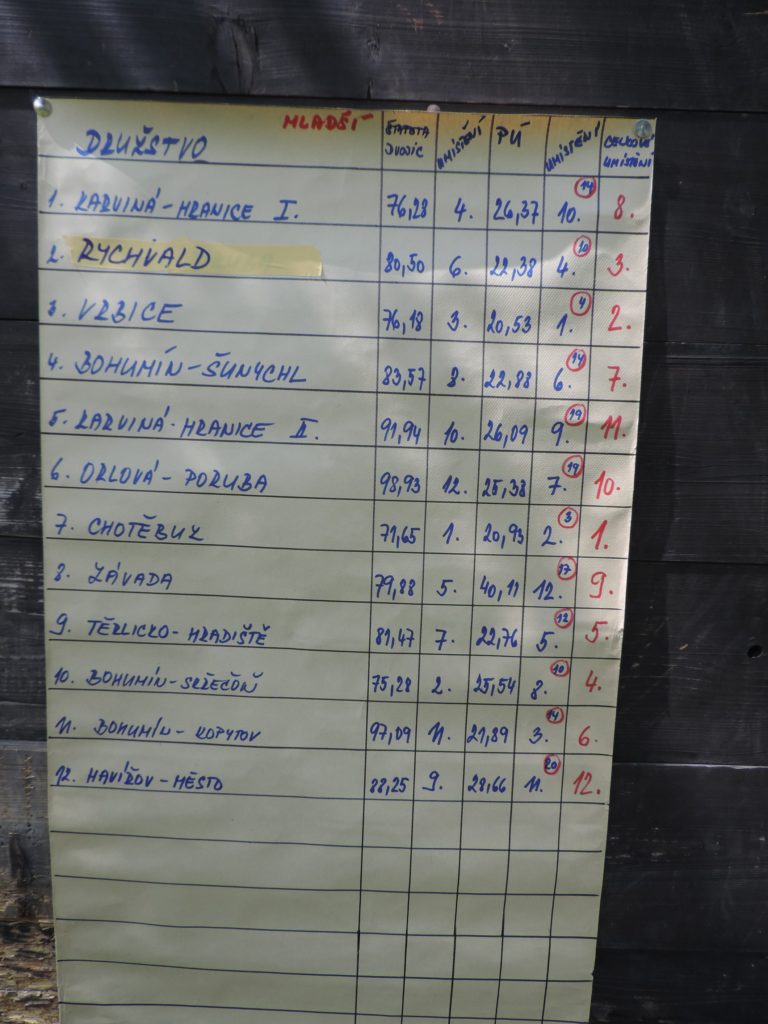 MLADŠÍ
DRUŽSTVO ŠTAFETA DVOJIC UMÍSTĚNÍ PÚ UMÍSTĚNÍ CELKOVÉ UMÍSTĚNÍ
1. KARVINÁ-HRANICE I. 76,28 4. 26,37 10. 14 8.
2. RYCHVALD 80,50 6. 22,38 4. 10 3.
3. VRBICE 76,18 3. 20,53 1. 4 2.
4. BOHUMÍN-ŠUNYCHL 83,57 8. 22,88 6. 14 7.
5. KARVINÁ-HRANICE II. 91,94 10. 26,09 9. 19 11.
6. ORLOVÁ-PORUBA 98,93 12. 25,38 7. 19 10.
7. CHOTĚBUZ 71,65 1. 20,93 2. 3 1.
8. ZÁVADA 79,88 5. 40,11 12. 17 9.
9. TĚRLICKO-HRADIŠTĚ 81,47 7. 22,76 5. 12 5.
10. BOHUMÍN-SKŘEČOŇ 75,28 2. 25,54 8. 10 4.
11. BOHUMÍN-KOPYTOV 97,09 11. 21,89 3. 14 6.
12. HAVÍŘOV-MĚSTO 88,25 9. 28,66 11. 20 12.